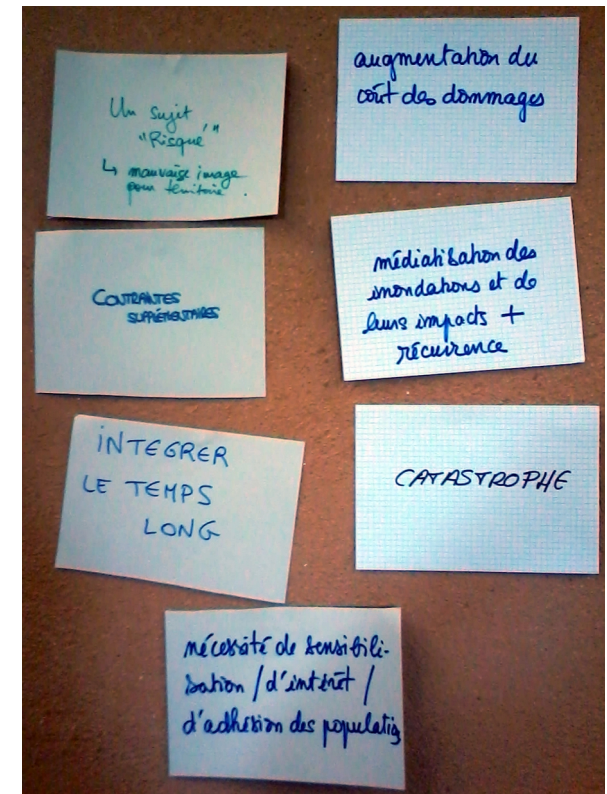 Un sujet
"Risqué"
↳ mauvaise image
pour territoire.
augmentation du
coût des dommages
CONTRAINTES
SUPPLÉMENTAIRES
médiatisation des
inondations et de
leurs impacts +
récurrence
INTEGRER
LE TEMPS
LONG
CATASTROPHE
nécessité de sensibili-
sation / d'intérêt /
d'adhésion des populatio